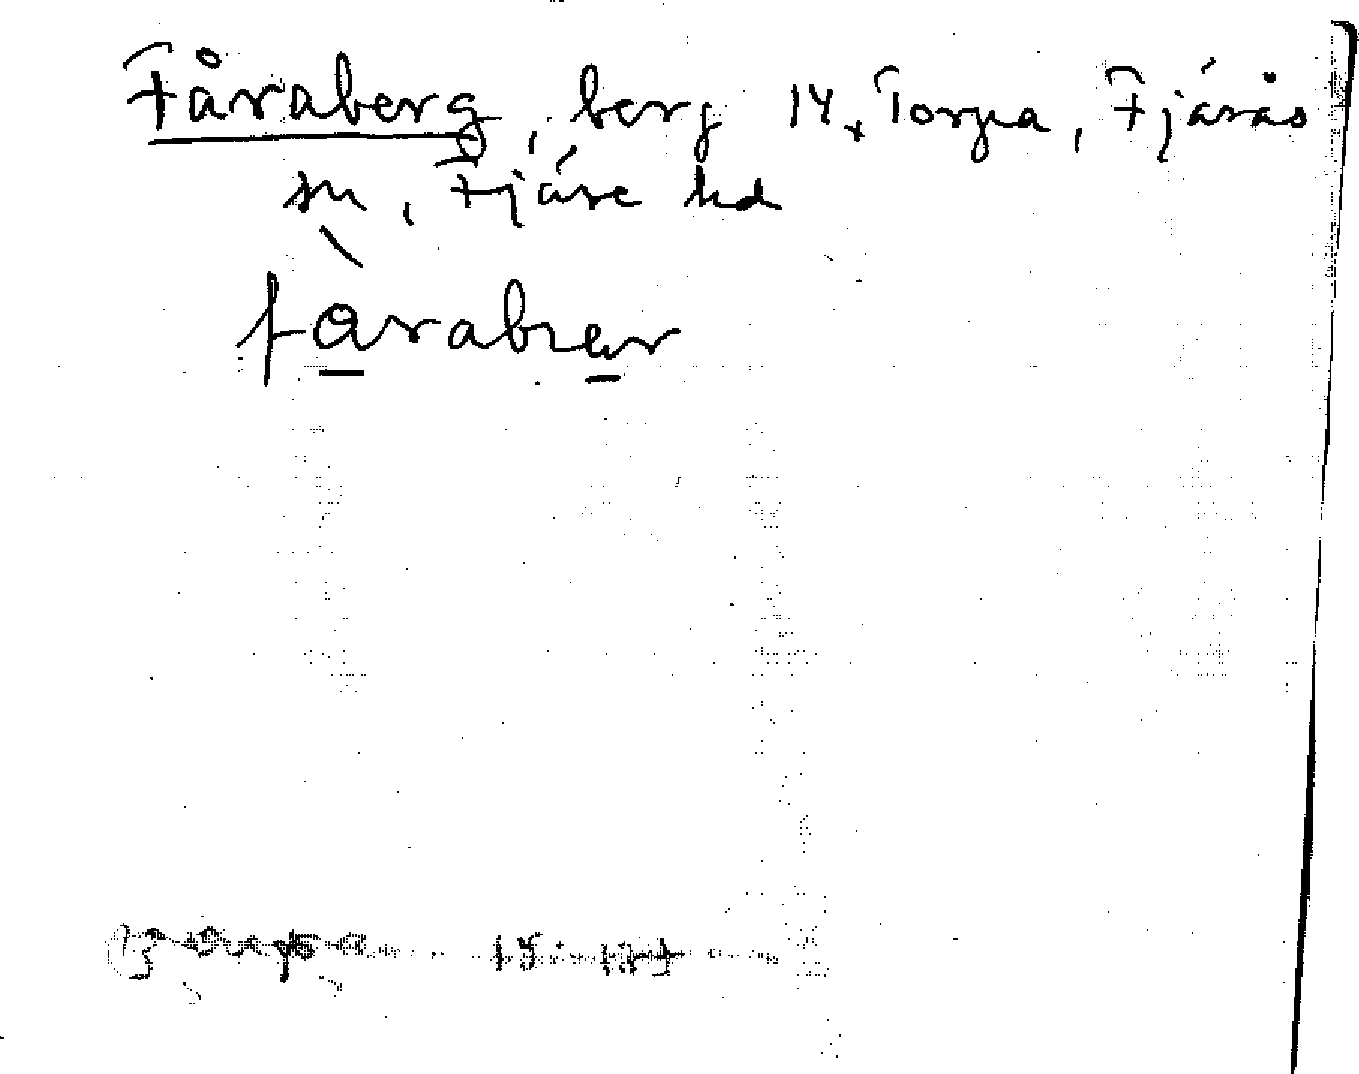 Fåraberg, berg 14, Torpa, Fjärås
sn, Fjäre hd
fàrabrær